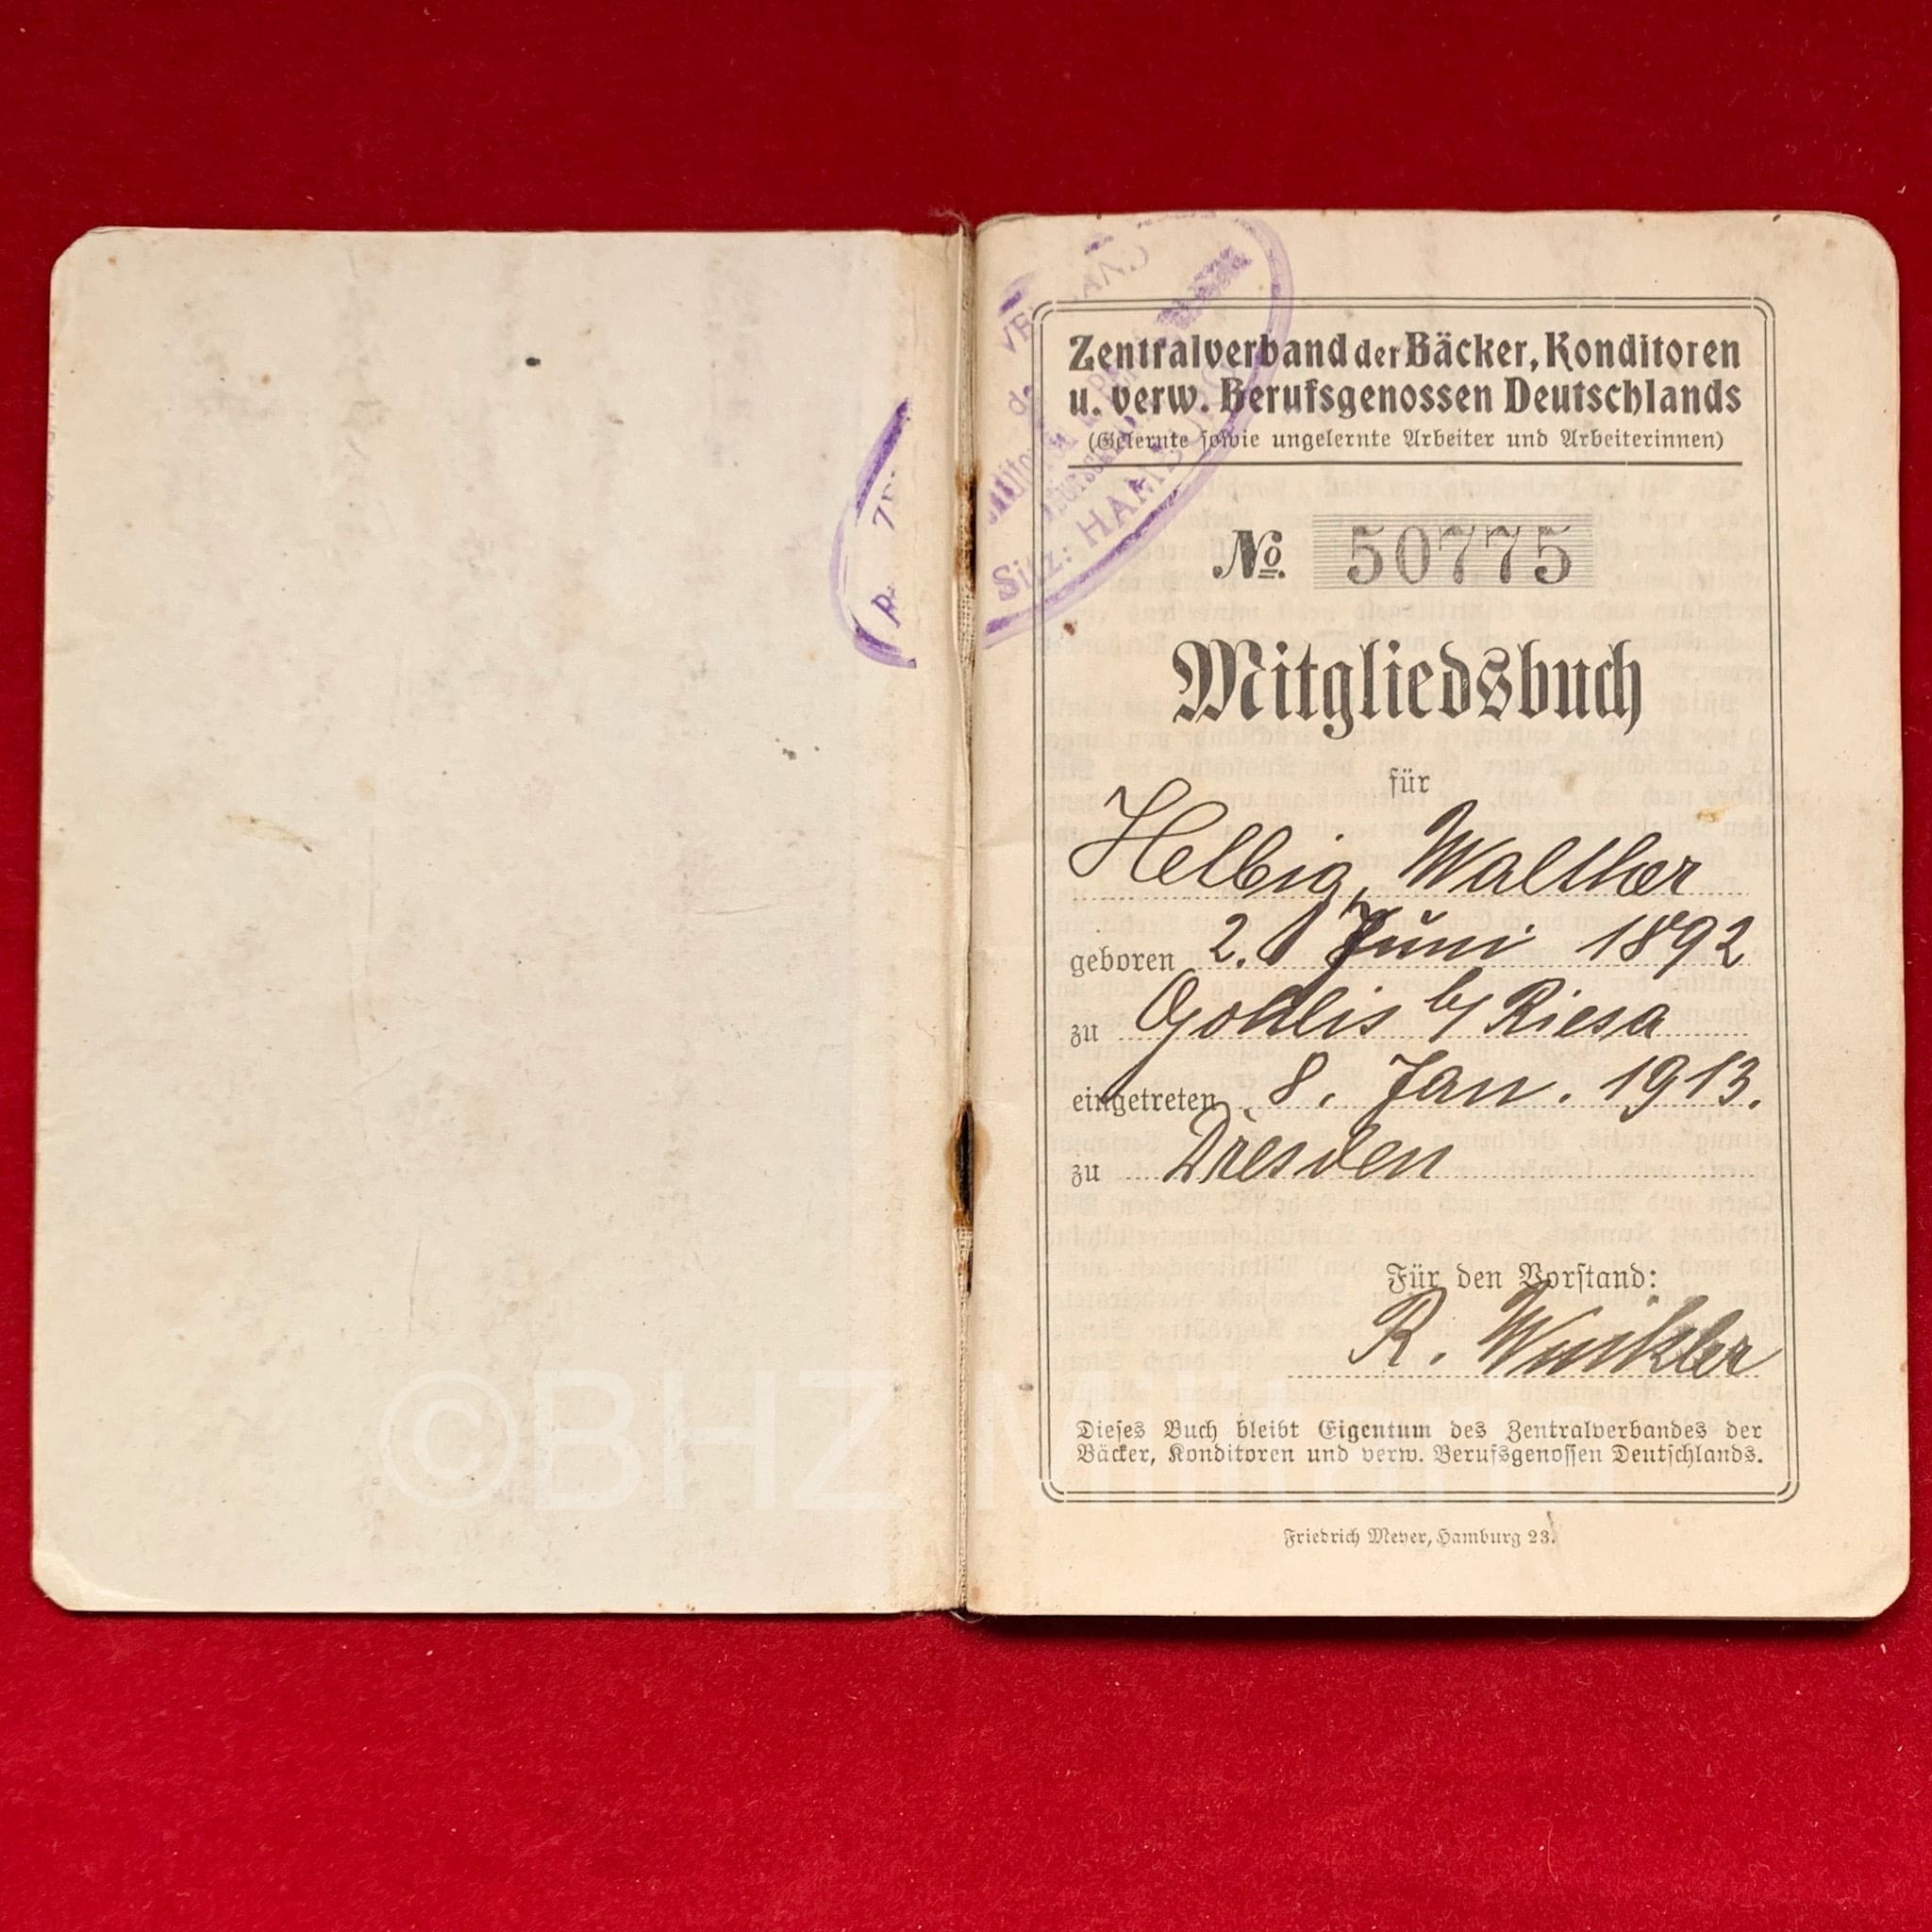 Zentralverband der Bäcker, Konditoren
u. verw. Berufsgenossen Deutschlands
(Gelernte sowie ungelernte Arbeiter und Arbeiterinnen)
Sitz: HAMBURG
No. 50775
Mitgliedsbuch
für
Helbig, Walther
geboren 2. Juni 1892
zu Gohlis b/ Riesa
eingetreten 8. Jan. 1913.
zu Dresden
Für den Vorstand:
R. Winkler
©BHZ Militaria
Dieses Buch bleibt Eigentum des Zentralverbandes der
Bäcker, Konditoren und verw. Berufsgenossen Deutschlands.
Friedrich Meyer, Hamburg 23.